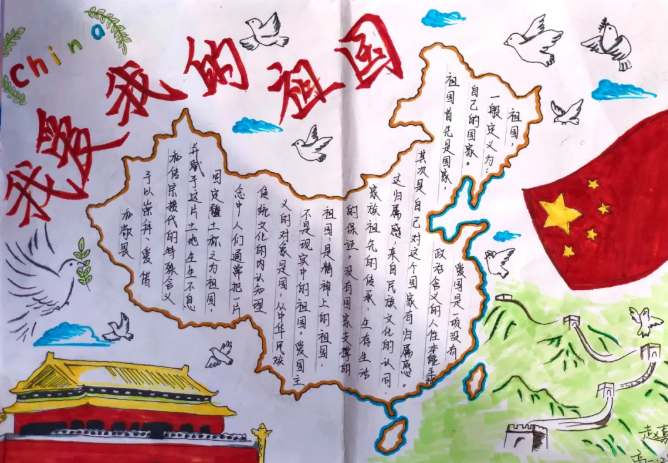 China
我爱我的祖国
祖国，
一般定义为：
自己的国家。
祖国首先是国家，
其次是自己对这个国家有归属感。
这归属感，来自民族文化的认同，
家族祖先的传承，生存生活
的保证，没有国家支撑的
不是现实中的祖国。爱国主
义的对象是国，从中华民族
传统文化的内认知理
念中人们通常把一片
固定疆土称之为祖国，
并赋予这片土地生生不息
和传宗接代的特殊含义
予以崇拜、爱惜
和敬畏
爱国是一项没有
政治含义的人性本能
祖国是精神上的祖国，
赵
高一